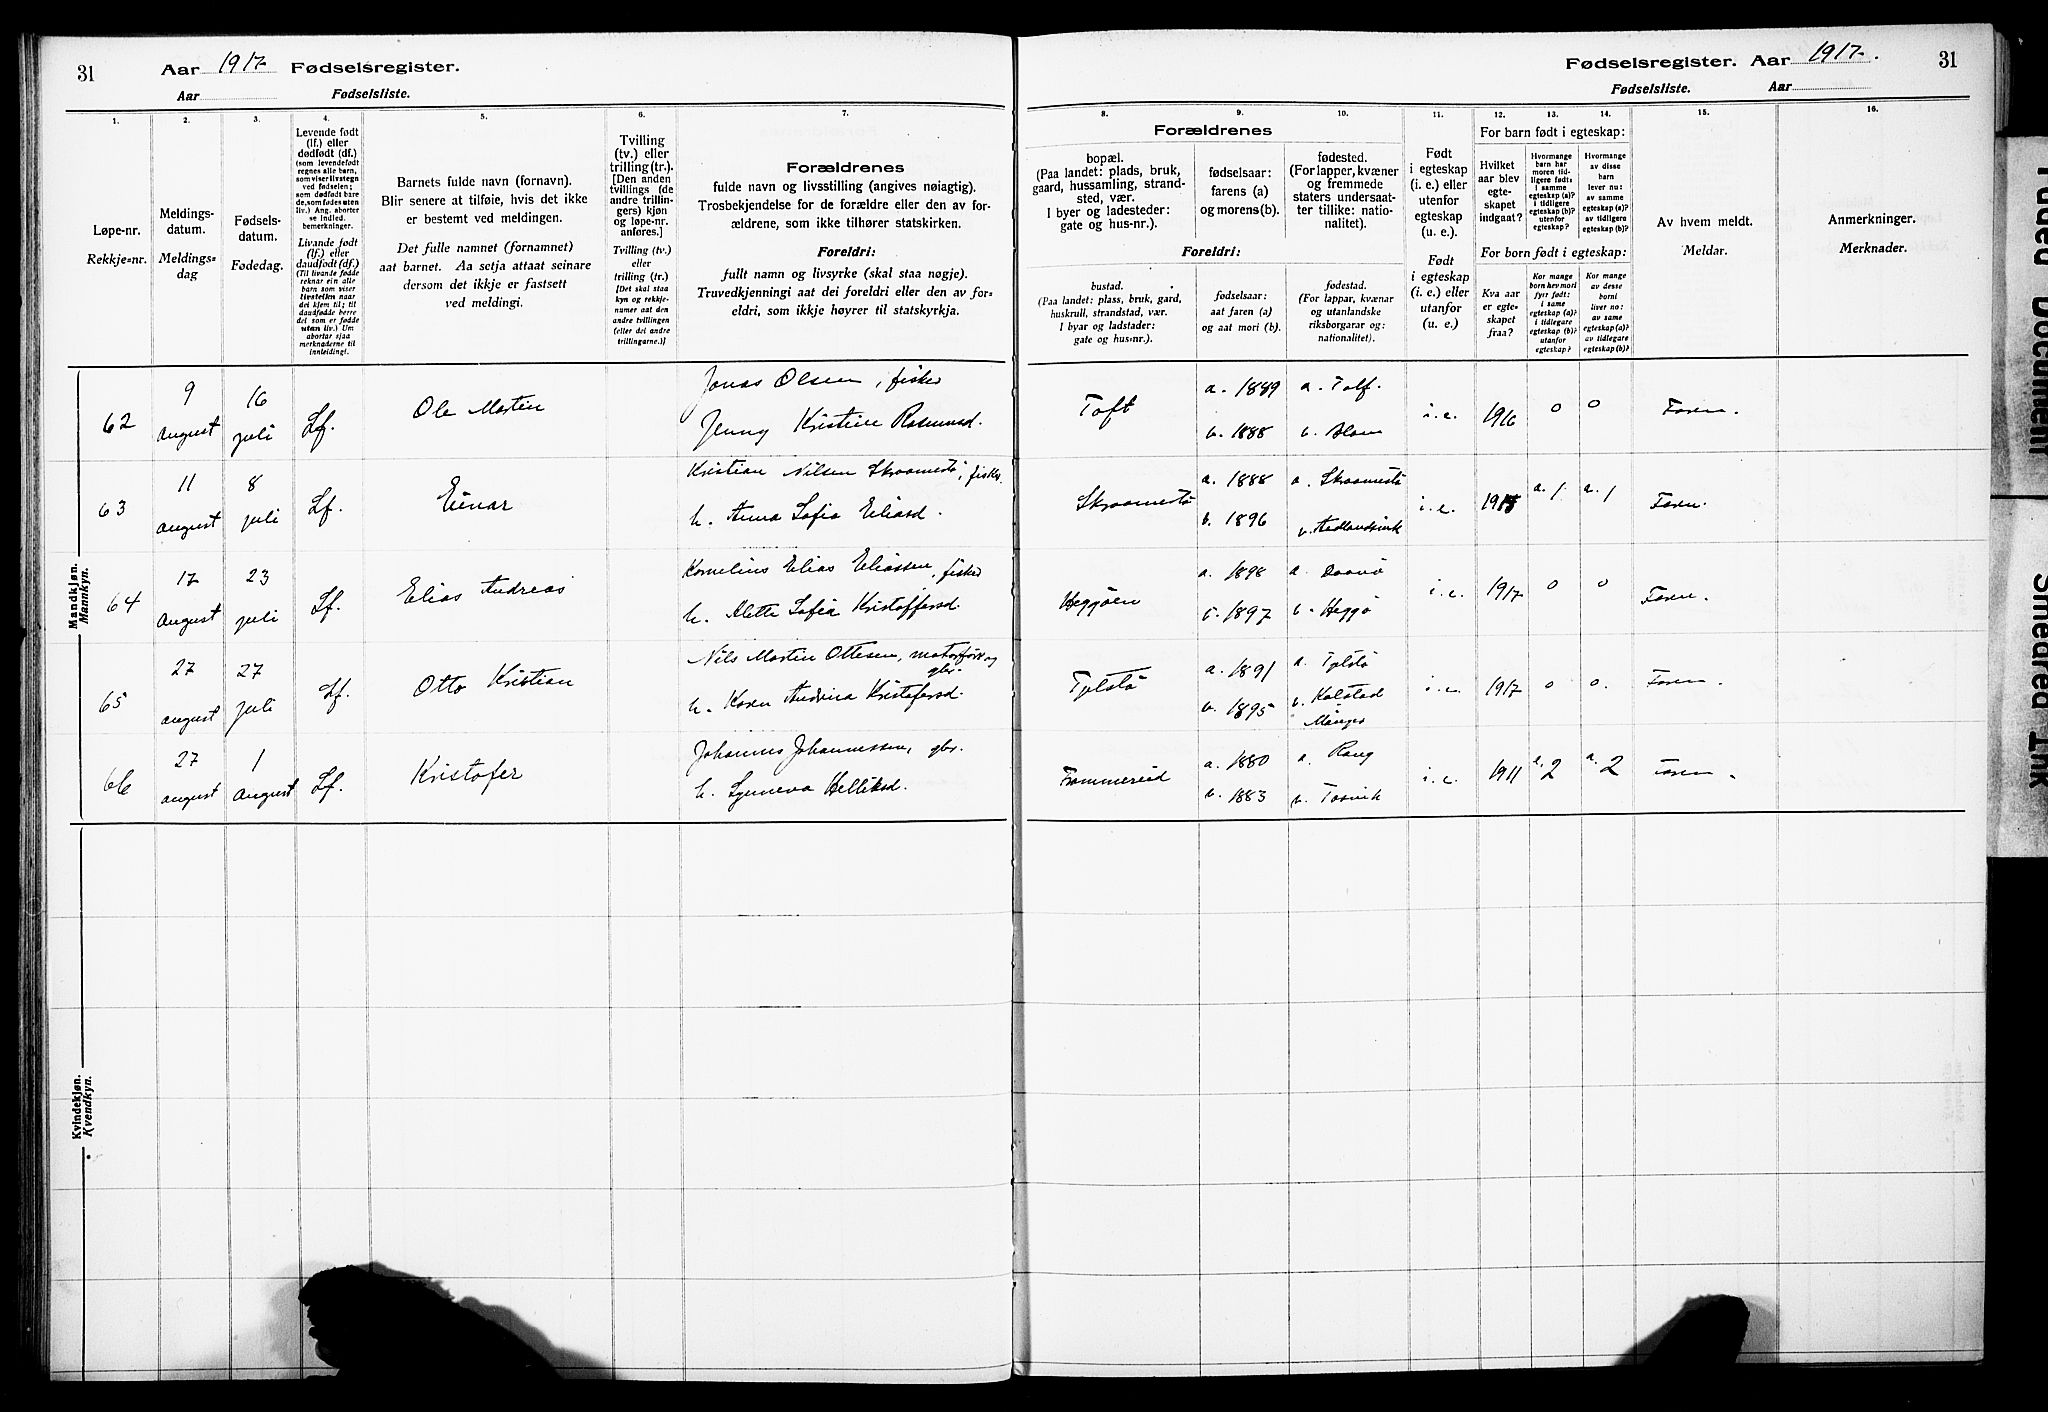 31 Aar 1917 Fødselsregister.
Aar Fødselsliste.
Fødselsregister. Aar 1917. 31
Fødselsliste. Aar
1.
Løpe-nr.
Rekkje=nr.
2.
Meldings-
datum.
Meldings=
dag
3.
Fødsels-
datum.
Fødedag.
4.
Levende født
(lf.) eller
dødfødt (df.)
(som levendefødt
regnes alle barn,
som viser livstegn
ved fødselen;
som dødfødt bare
de, som fødes uten
liv.) Ang. aborter
se indled.
bemerkninger.
Livande født
(lf.) eller
daudfødt (df.)
(Til livande fødde
reknar ein alle
barn som viser
livsteikn naar
dei kjem til; til
daudfødde berre
dei som er fødde
utan liv.) Um
abortar sjaa
merknaderne til
innleiding!.
5.
Barnets fulde navn (fornavn).
Blir senere at tilføie, hvis det ikke
er bestemt ved meldingen.
Det fulle namnet (fornamnet)
aat barnet. Aa setja attaat seinare
dersom det ikkje er fastsett
ved meldingi.
6.
Tvilling
(tv.) eller
trilling (tr.).
[Den anden
tvillings (de
andre trillin-
gers) kjøn
og løpe-nr.
anføres.]
Tvilling (tv.)
eller
trilling (tr.)
[Det skal staa
kyn og rekkje-
numer aat den
andre tvillingen
(eller dei andre
trillingarne.)]
7.
Forældrenes
fulde navn og livsstilling (angives nøiagtig).
Trosbekjendelse for de forældre eller den av for-
ældrene, som ikke tilhører statskirken.
Foreldri:
fullt namn og livsyrke (skal staa nøgje).
Truvedkjenningi aat dei foreldri eller den av for=
eldri, som ikkje høyrer til statskyrkja.
Forældrenes
8.
bopæl.
(Paa landet: plads, bruk,
gaard, hussamling, strand-
sted, vær.
I byer og ladesteder:
gate og hus-nr.).
9.
fødselsaar:
farens (a)
og morens(b).
10.
fødested.
(For lapper, kvæner
og fremmede
staters undersaat-
ter tillike: natio-
nalitet).
Foreldri:
bustad.
(Paa landet: plass, bruk, gard,
huskrull, strandstad, vær.
I byar og ladstader:
gate og hus=nr.).
fødselsaar:
aat faren (a)
og aat mori (b).
fødestad.
(For lappar, kvænar
og utanlandske
riksborgarar og:
nationalitet).
11.
Født
i egteskap
(i. e.) eller
utenfor
egteskap
(u. e.).
Født
i egteskap
(i. e.) eller
utanfor
(u. e.).
For barn født i egteskap:
12.
Hvilket
aar blev
egte-
skapet
indgaat?
13.
Hvormange
barn har
moren tid-
ligere født:
i samme
egteskap (a)?
i tidligere
egteskap (b)?
utenfor
egteskap?
14.
Hvormange
av disse
barn
lever nu:
av samme
egteskap (a)?
av tidligere
egteskap (b)?
For born født i egteskap:
Kva aar
er egte=
skapet
fraa?
Kor mange
born hev mori
fyrr født:
i same
egteskap (a)?
i tidlegare
egteskap (b)?
utanfor
egteskap?
Kor mange
av desse
borni
liver no:
av same
egteskap (a)?
av tidlegare
egteskap (b)?
15.
Av hvem meldt.
Meldar.
16.
Anmerkninger.
Merknader.
Mandkjøn.
Mannkyn.
62 9 august 16 juli Lf. Ole Martin
Jonas Olsen, fisker
Jenny Kristine Rasmusd.
Toft a. 1889 b. 1888 i.e. 1916 0 0 Faren.
63 11 august 8 juli Lf. Einar
Kristian Nilsen Skraamestø, fisker.
h. Anna Sofia Eliasd.
Skraamestø a. 1888 a. Skraamestø
b. 1896
i.e. 1915 a. 1 a. 1 Faren.
64 17 august 23 juli Lf. Elias Andreas
Kornelius Elias Eliassen, fisker
h. Alette Sofia Kristoffersd.
Heggøen a. 1898
b. 1897 b. Heggø
i.e. 1917 0 0 Faren.
65 27 august 27 juli Lf. Otto Kristian
Nils Martin Ottesen, motorfører og
gbr.
h. Karen Andrina Kristofersd.
Tjelstø a. 1891 a. Tjelstø
b. 1895 b. Kolstad
Manger
i.e. 1917 0 0. Faren.
66 27 august 1 august Lf. Kristofer
Johannes Johannessen, gbr.
h. Synneva Helliksd.
Frommereid a. 1880
b. 1883 b. Tosvik
i.e. 1911 a. 2 a. 2 Faren.
Kvindekjøn.
Kvendkyn.
Faded Document
Smeared Ink